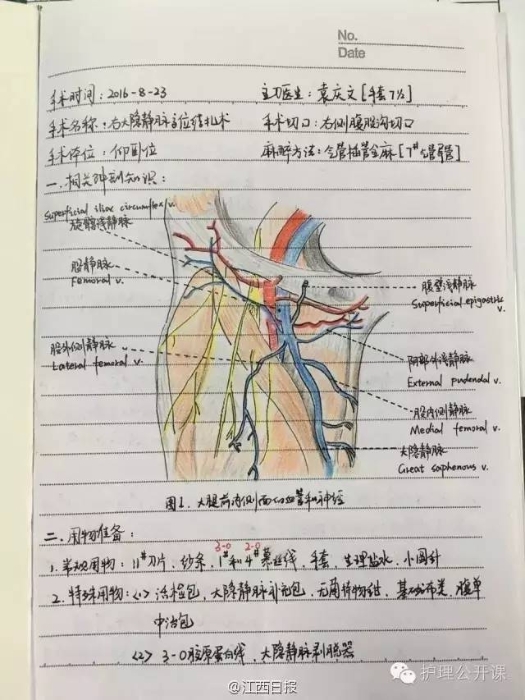 No.
Date
手术时间：2016-8-23 主刀医生：袁庆文［手套7½］
手术名称：右大隐静脉高位结扎术 手术切口：右侧腹股沟切口
手术体位：仰卧位 麻醉方法：全管插管全麻［7#气管导管］
一、相关解剖知识：
Superficial iliac circumflex v.
旋髂浅静脉
股静脉
Femoral v.
股外侧静脉
Lateral femoral v.
腹壁浅静脉
Superficial epigastric v.
阴部外浅静脉
External pudendal v.
股内侧静脉
Medial femoral v.
大隐静脉
Great saphenous v.
图1. 大腿前内侧面的血管和神经
二、用物准备：
3-0 2-0
1. 常规用物：11#刀片、纱条、1#和4#慕丝线、手套、生理盐水、小圆针
2. 特殊用物：<1> 浅检包、大隐静脉补充包、无菌持物钳、基础布类、腹单
中治包
<2> 3-0胶原蛋白线、大隐静脉剥脱器
护理公开课
@江西日报